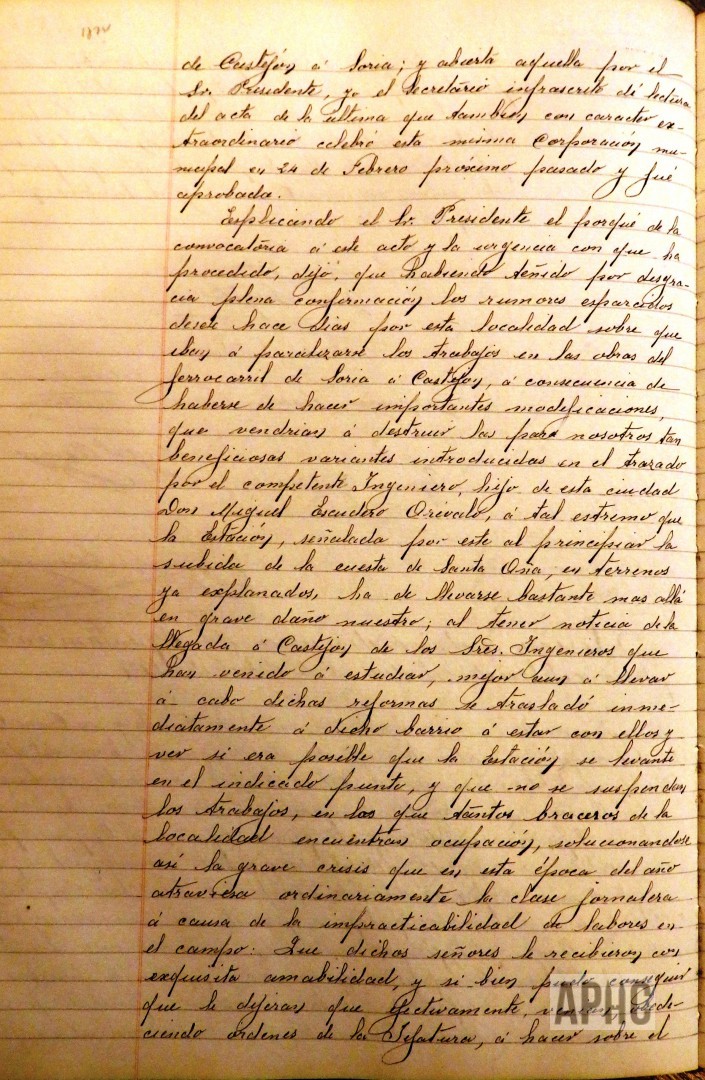 de Castejón á Soria; y abierta aquella por el
Sr. Presidente, yo el Secretario infrascrito dí lectura
del acta de la última que tambien con caracter ex-
traordinario celebró esta misma Corporación mu-
nicipal en 24 de Febrero próximo pasado y fué
aprobada.
Esplicando el Sr. Presidente el porqué de la
convocatoria á este acto y la urgencia con que ha
procedido, dijo, que habiendo teñido por desgra-
cia plena confirmación los rumores esparcidos
desde hace dias por esta localidad sobre que
iban á paralizarse los trabajos en las obras del
ferrocarril de Soria á Castejon, á consecuencia de
haberse de hacer importantes modificaciones,
que vendrian á destruir las para nosotros tan
beneficiosas variantes introducidas en el trazado
por el competente Ingeniero, hijo de esta ciudad
Don Miguel Escudero Orévalo, á tal estremo que
la Estación, señalada por este al principiar la
subida de la cuesta de Santa Ona, en terrenos
ya explanados, ha de llevarse bastante mas allá
en grave daño nuestro; al tener noticia de la
llegada á Castejon de los Sres. Ingenieros que
han venido á estudiar, mejor aun á llevar
á cabo dichas reformas se trasladó inme-
diatamente á dicho barrio á estar con ellos y
ver si era posible que la Estación se levante
en el indicado punto, y que no se suspendan
los trabajos, en los que tantos braceros de la
localidad encuentran ocupación, solucionandose
así la grave crisis que en esta época del año
atraviesa ordinariamente la clase jornalera
á causa de la impracticabilidad de labores en
el campo: Que dichos señores le recibieron con
exquisita amabilidad, y si bien pudo conseguir
que le dijeran que efectivamente, venian, obede-
ciendo órdenes de la Jefatura, á hacer sobre el
APHC